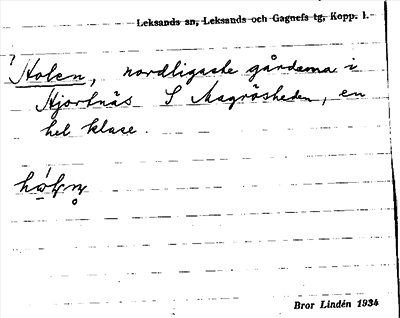 Leksands sn, Leksands och Gagnefs tg, Kopp. l.
7
Holen, nordligaste gårdarna i
Hjortnäs S Magrösheden, en
hel klase.
Bror Lindén 1934